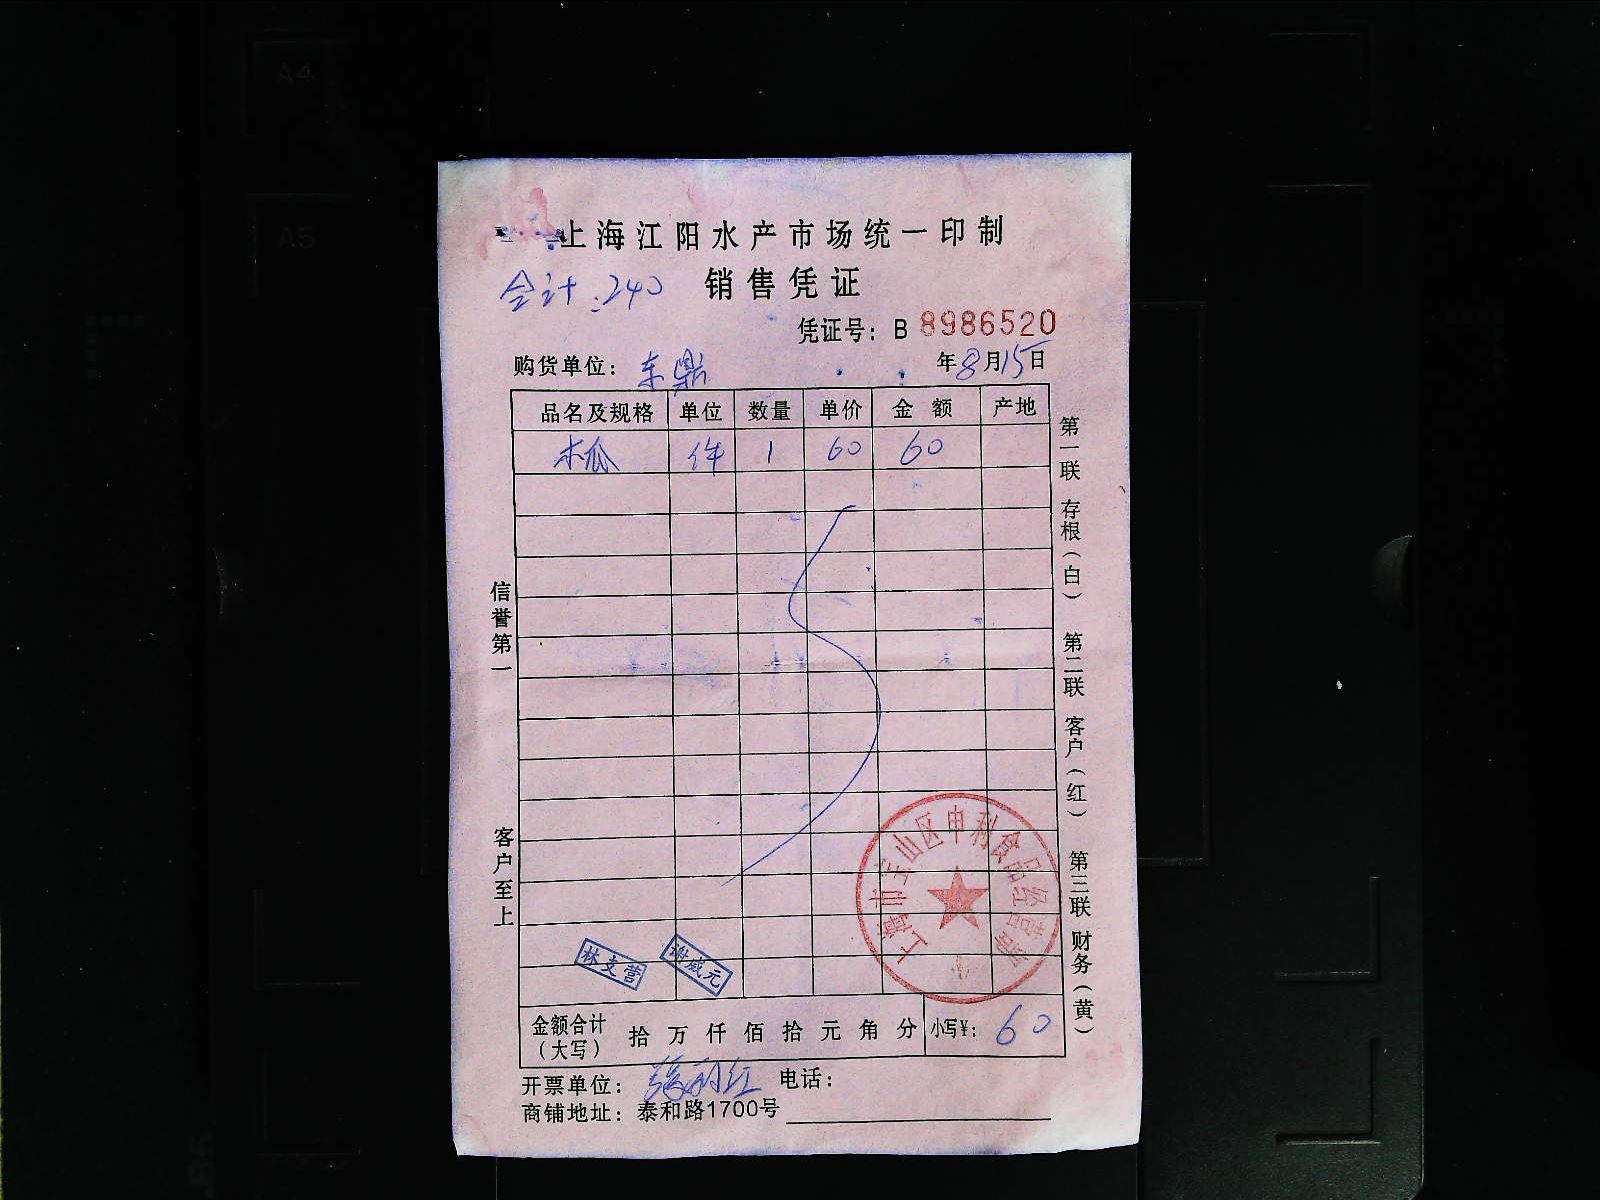 上海江阳水产市场统一印制
合计:240 销售凭证
凭证号：B 8986520
购货单位：东鼎 年8月15日
品名及规格 单位 数量 单价 金额 产地
木瓜 件 1 60 60
第一联 存根（白） 第二联 客户（红） 第三联 财务（黄）
信誉第一
客户至上
上海市宝山区申利食品经营部
林支营 谢威元
金额合计（大写） 拾万仟佰拾元角分 小写¥：60
开票单位： 电话：
商铺地址：泰和路1700号
A4
A5